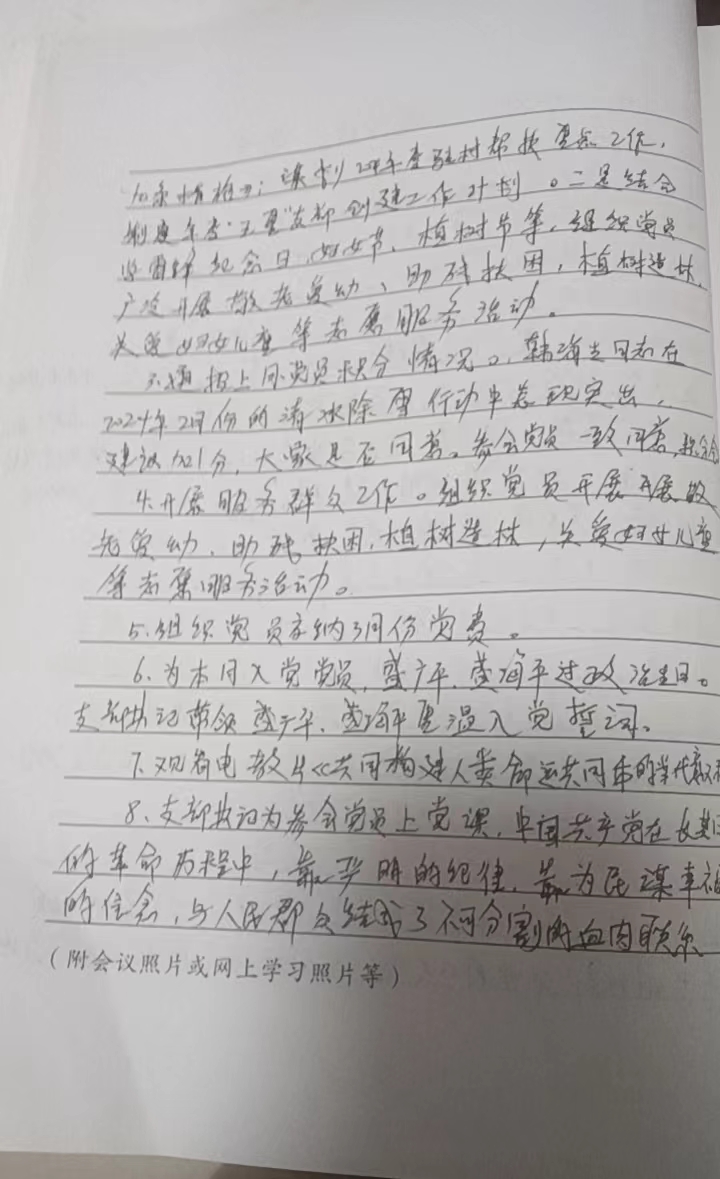 谋划2024年度驻村帮扶重点工作，
制定年度"五星"支部创建工作计划。二是结合
学雷锋纪念日、妇女节、植树节等，组织党员
广泛开展敬老爱幼、助残扶困，植树造林，
关爱妇女儿童等志愿服务活动。
3.通报上月党员积分情况。韩海生同志在
2024年2月份的清冰除雪行动中表现突出，
建议加1分，大家是否同意。参会党员一致同意，
4.开展服务群众工作。组织党员开展开展敬
老爱幼、助残扶困，植树造林，关爱妇女儿童
等志愿服务活动。
5.组织党员交纳3月份党费。
6.为本月入党党员，平、海平过政治生日。
支部书记带领平、海平重温入党誓词。
7.观看电教片《共同构建人类命运共同体的当代
8、支部书记为参会党员上党课，中国共产党在长期
的革命历程中，靠严明的纪律，靠为民谋幸福
的信念，与人民群众结成了不可分割的血肉联系
（附会议照片或网上学习照片等）